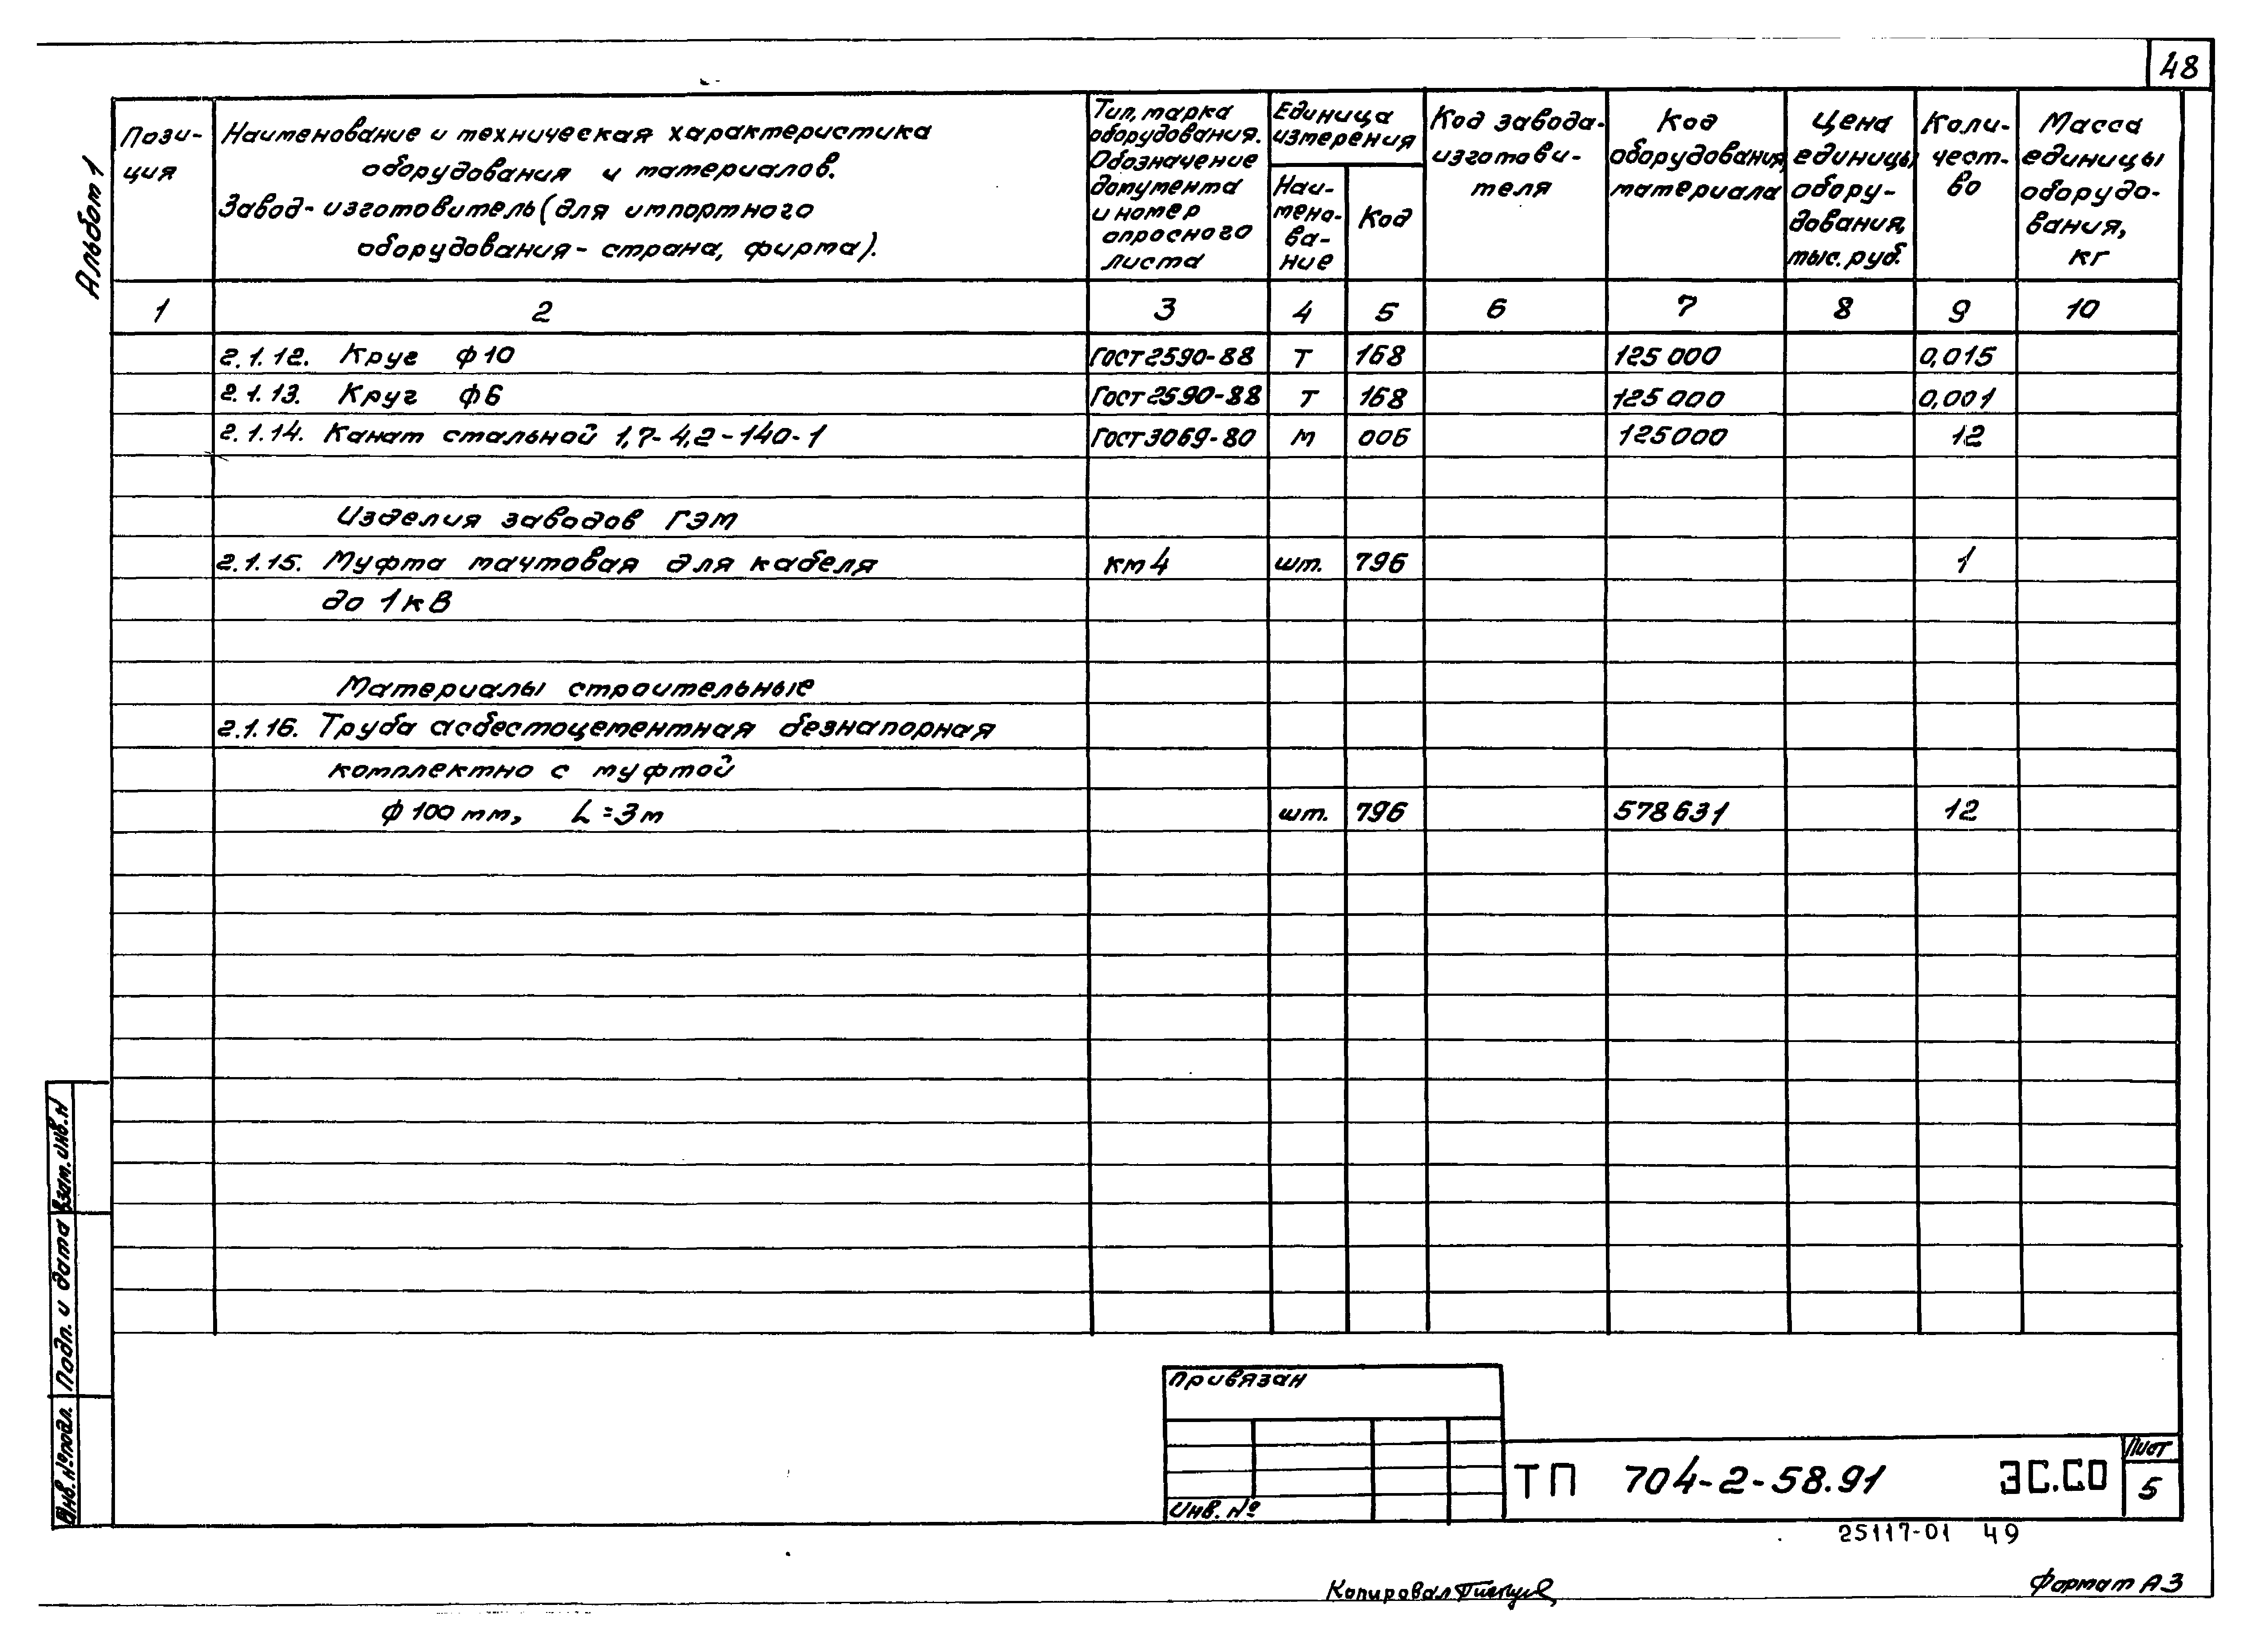 48
Альбом 1
Пози-
ция
Наименование и техническая характеристика
оборудования и материалов.
Завод-изготовитель (для импортного
оборудования - страна, фирма).
Тип, марка
оборудования.
Обозначение
документа
и номер
опросного
листа
Единица
измерения
Наи-
мено-
ва-
ние
Код
Код завода-
изготови-
теля
Код
оборудования,
материала
Цена
единицы
обору-
дования,
тыс. руб.
Коли-
чест-
во
Масса
единицы
оборудо-
вания,
кг
1 2 3 4 5 6 7 8 9 10
2.1.12. Круг ф10 ГОСТ 2590-88 Т 168 125 000 0,015
2.1.13. Круг ф6 ГОСТ 2590-88 Т 168 125 000 0,001
2.1.14. Канат стальной 1,7-4,2-140-1 ГОСТ 3069-80 М 006 125000 12
Изделия заводов ГЭМ
2.1.15. Муфта мачтовая для кабеля КМ4 шт. 796 1
до 1 кВ
Материалы строительные
2.1.16. Труба асбестоцементная безнапорная
комплектно с муфтой
ф 100 мм, L=3м шт. 796 578631 12
Взам. инв. N
Подп. и дата
Инв. № подл.
Привязан
Инв. №
ТП 704-2-58.91 ЭС.СО
Лист
5
25117-01 49
Копировал
Формат А3